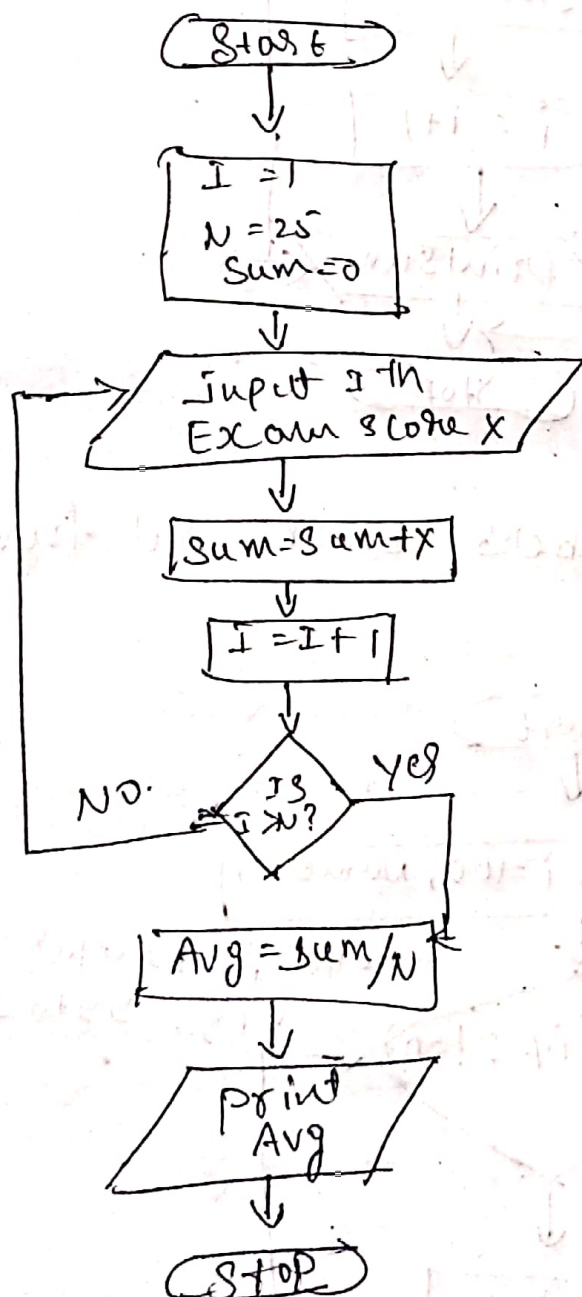 Start
I = 1
N = 25
Sum = 0
Input I th
Exam score X
Sum = Sum + X
I = I + 1
Is
I > N?
NO.
Yes
Avg = Sum/N
print
Avg
Stop